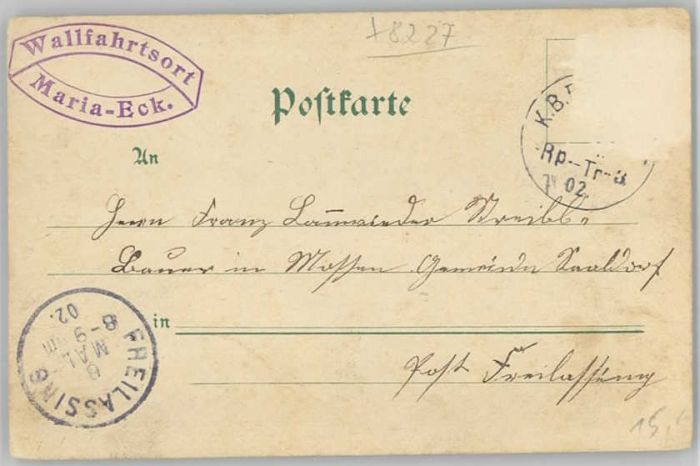 +8227
Wallfahrtsort
Maria-Eck.
Postkarte
K.B.
Rp.-Tr.
02
An
Herrn Franz Streibl-
Bauer in Moosen Gemeinde Saaldorf
in
Post Freilassing
FREILASSING
8
MAI
8-9
02.
15,